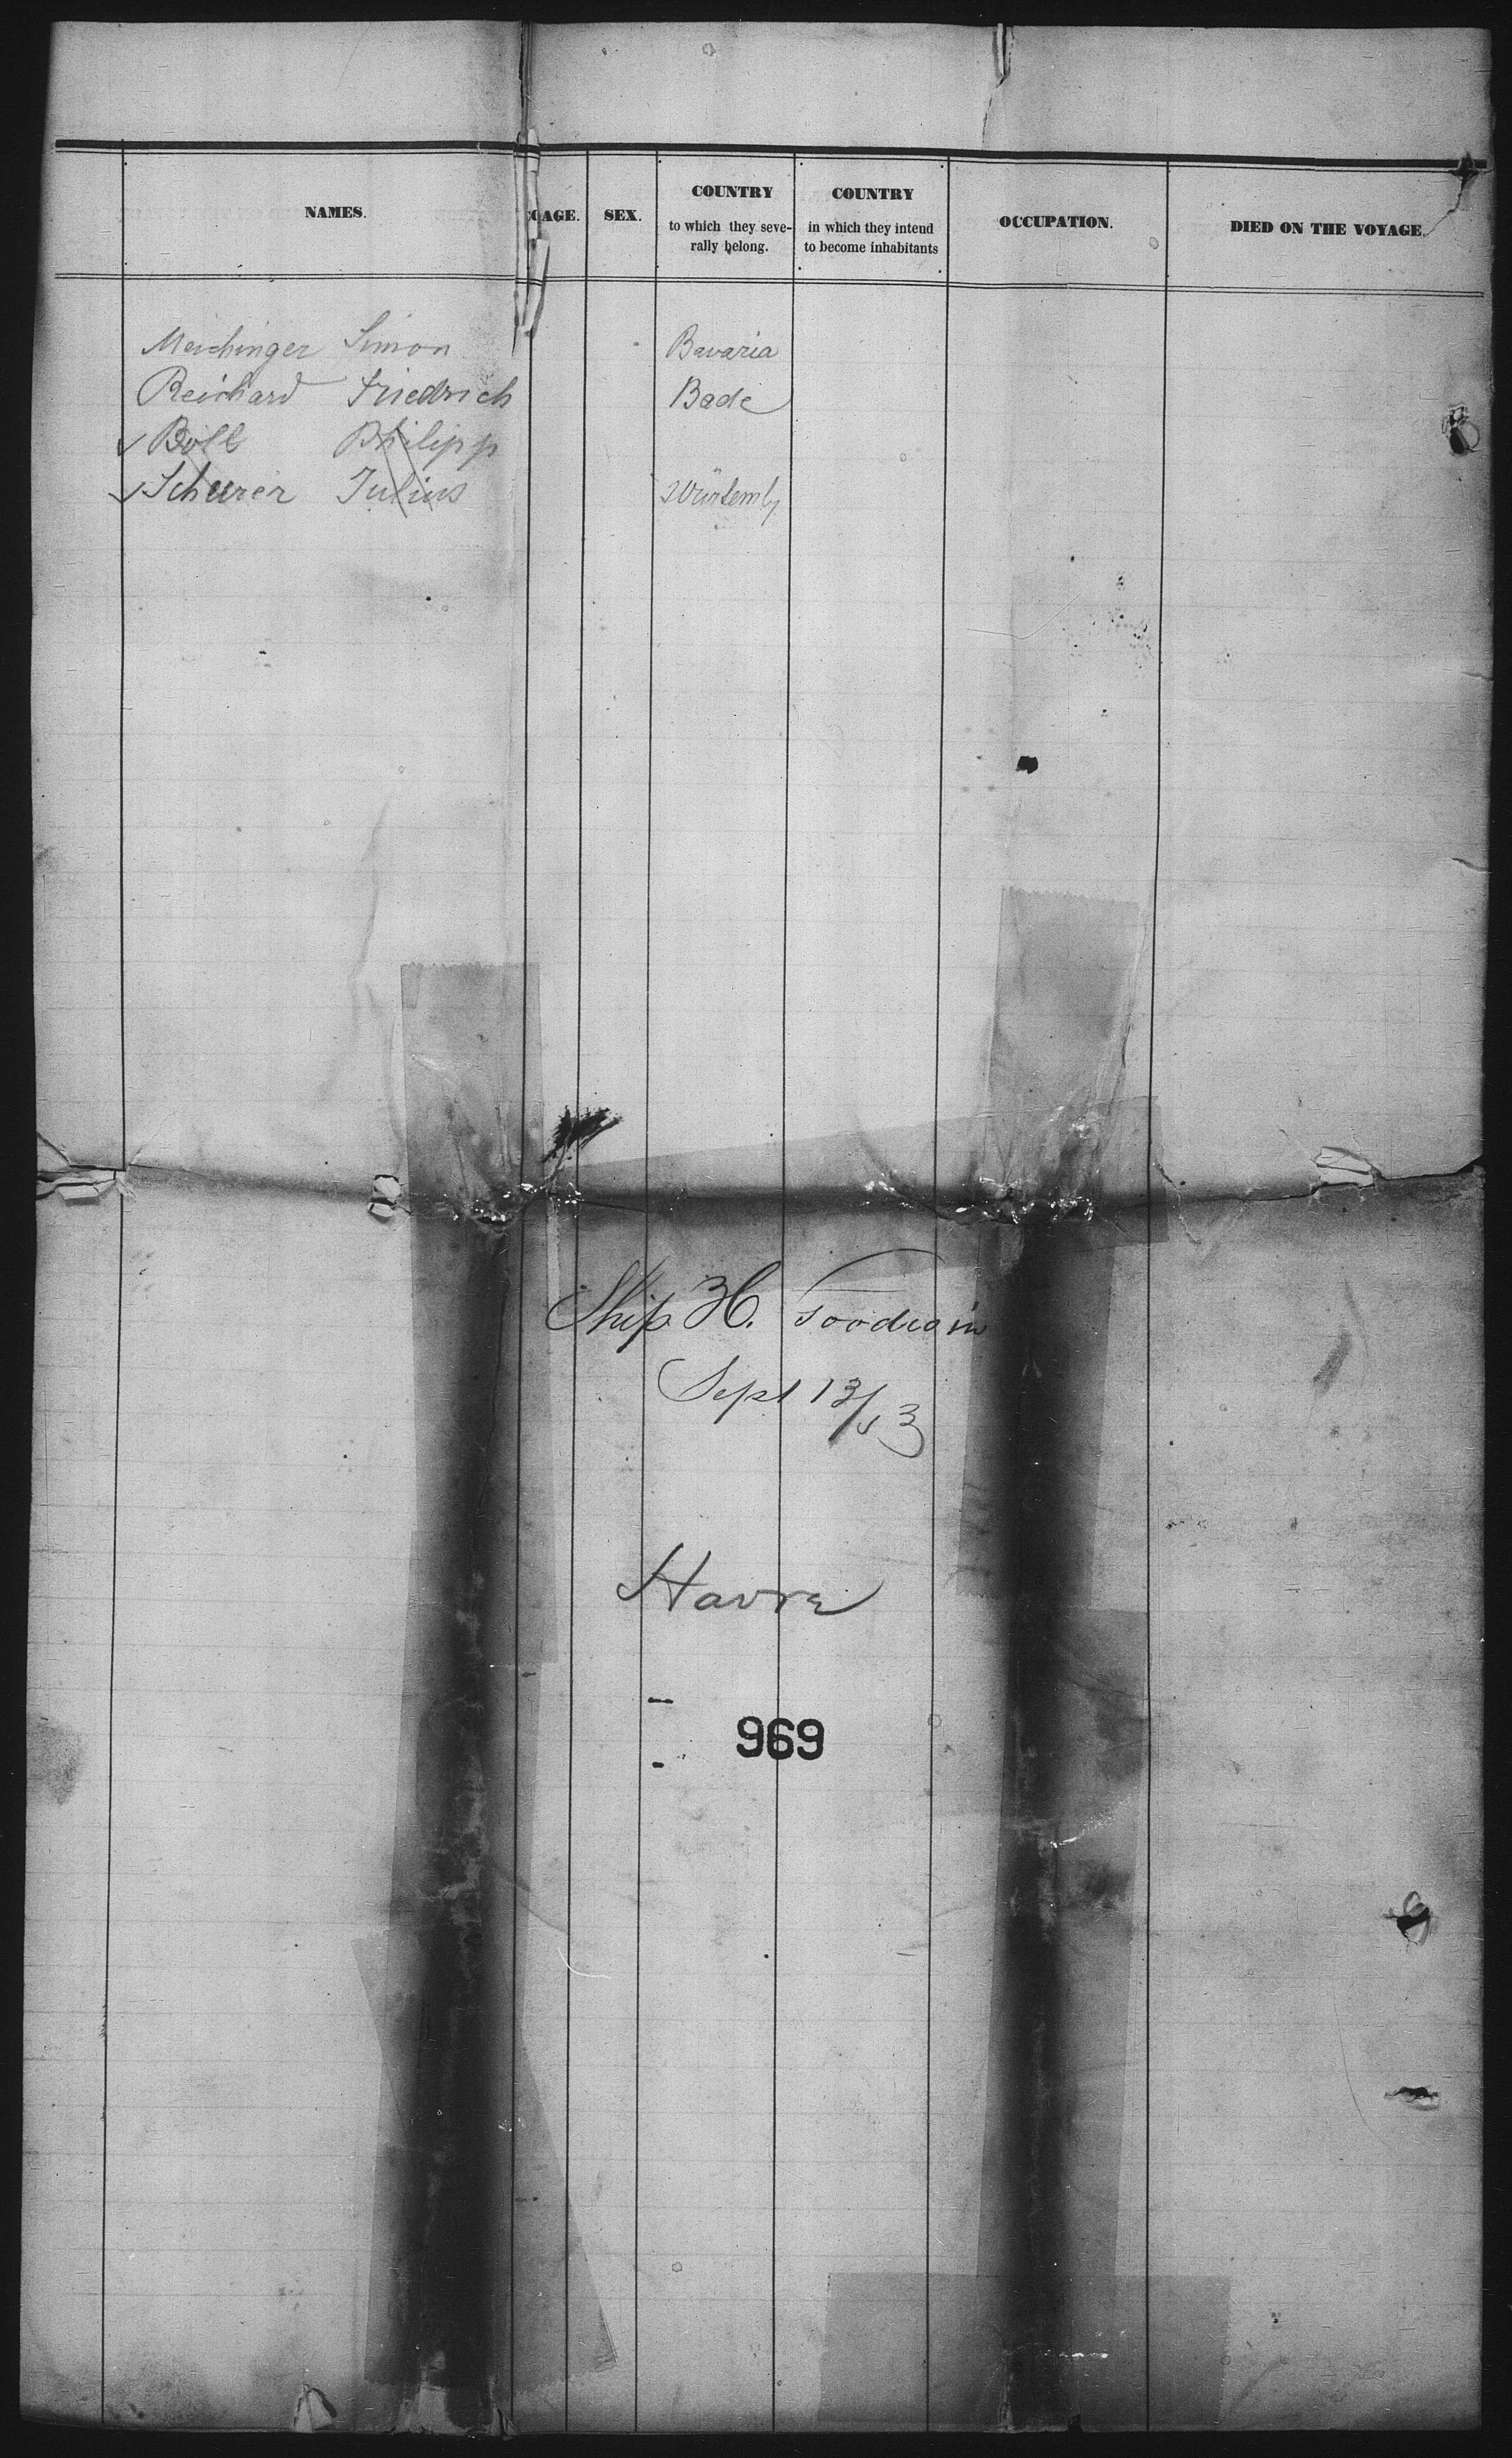 NAMES. AGE. SEX. COUNTRY to which they seve- rally belong. COUNTRY in which they intend to become inhabitants OCCUPATION. DIED ON THE VOYAGE.
Meichinger Simon Bavaria
Reichard Friedrich Bade
Boll Philipp
Scheurer Julius Würtembg
Ship H.
Sept 13/53
Havre
969